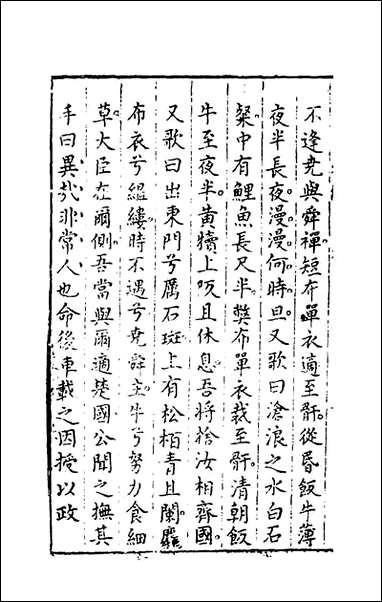 不逢尭與舜禪短布單衣適至骭從昏飯牛薄
夜半長夜漫漫何時旦又歌曰滄浪之水白石
粲中有鯉魚長尺半弊布單衣裁至骭清朝飯
牛至夜半黃犢上坂且休息吾將捨汝相齊國
又歌曰出東門兮厲石斑上有松栢青且闌麤
布衣兮緼縷時不遇兮尭舜主牛兮努力食細
草大臣在爾側吾當與爾適楚國公聞之撫其
手曰異㢤非常人也命後車載之因授以政